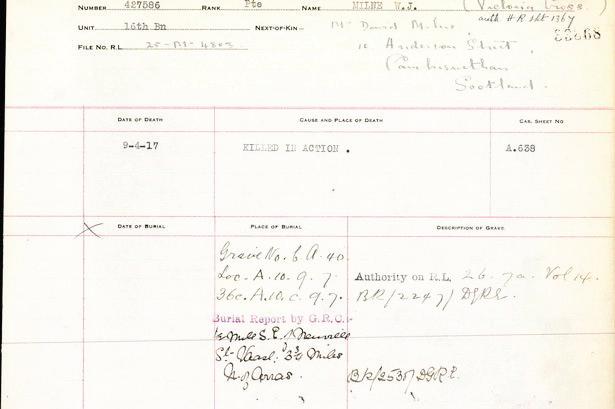 NUMBER 427586 RANK Pte NAME MILNE W.J. (Victoria Cross.
auth H.Q. sht 1367
33868
UNIT 16th Bn NEXT-OF-KIN— Mr David Milne,
FILE NO. R.L. 25-M-4803 Anderson Street,
Cambusnethan
Scotland.
DATE OF DEATH CAUSE AND PLACE OF DEATH CAS. SHEET NO
9-4-17 KILLED IN ACTION. A.638
X DATE OF BURIAL PLACE OF BURIAL DESCRIPTION OF GRAVE
Grave No. 6 A. 40.
Loc. A. 10. 9. 7. Authority on R.L. 26. Vol 14.
36c. A. 10. c. 9. 7. BR/2247/DGRE.
Burial Report by G.R.C:-
Mile S.E. Neuville
St. Vaast, 3¾ Miles
N. of Arras. BR/2535/DGRE.